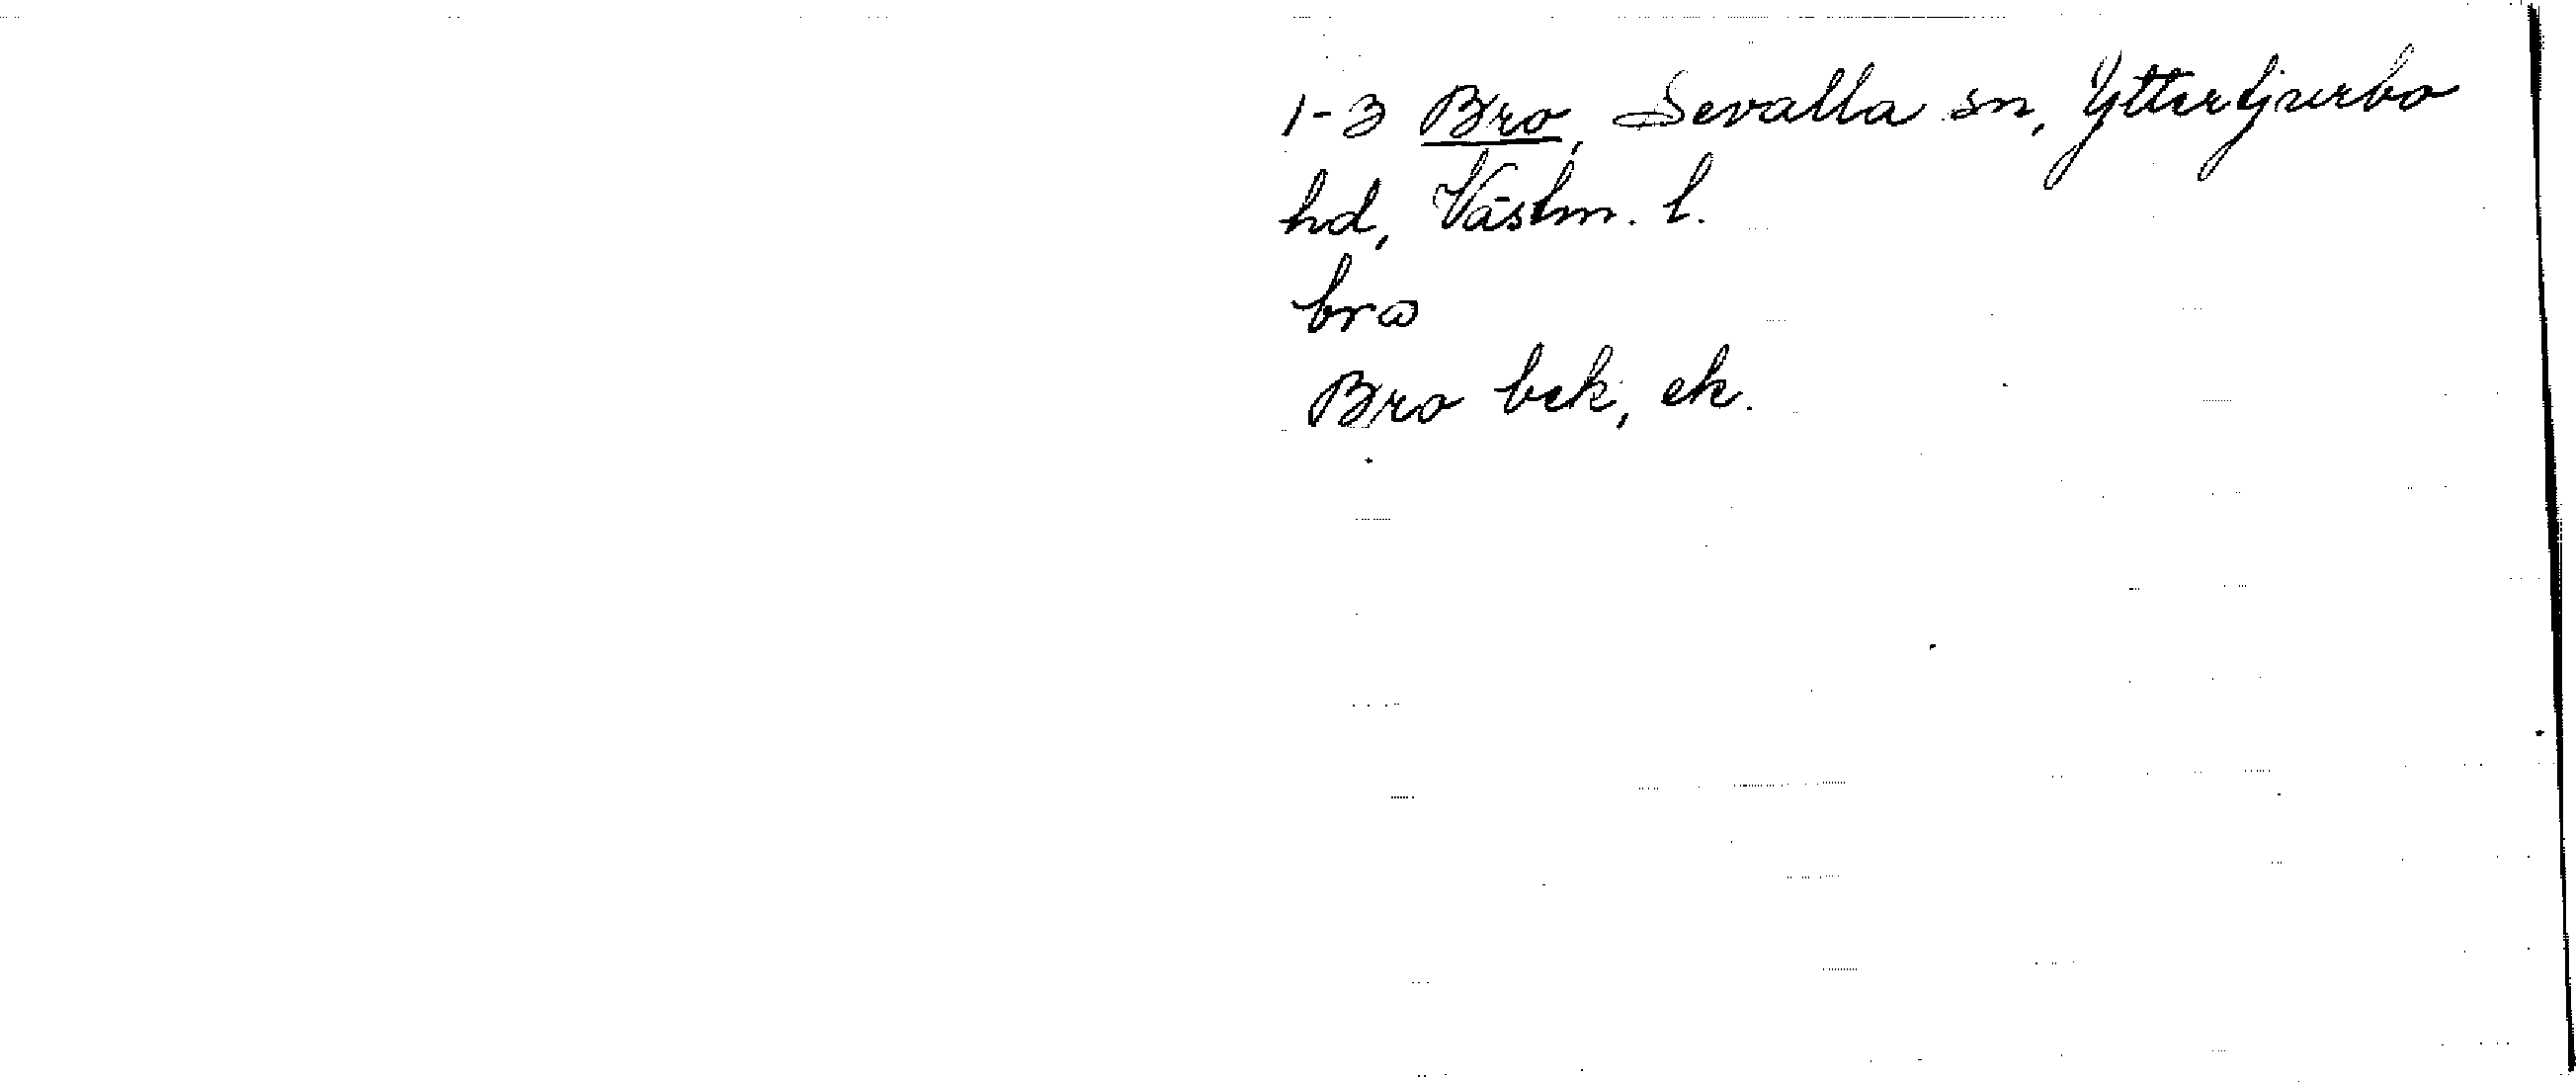 1-3 Bro, Sevalla sn, Yttertjurbo
hd, Västm. l.
brω
Bro bek, ek.